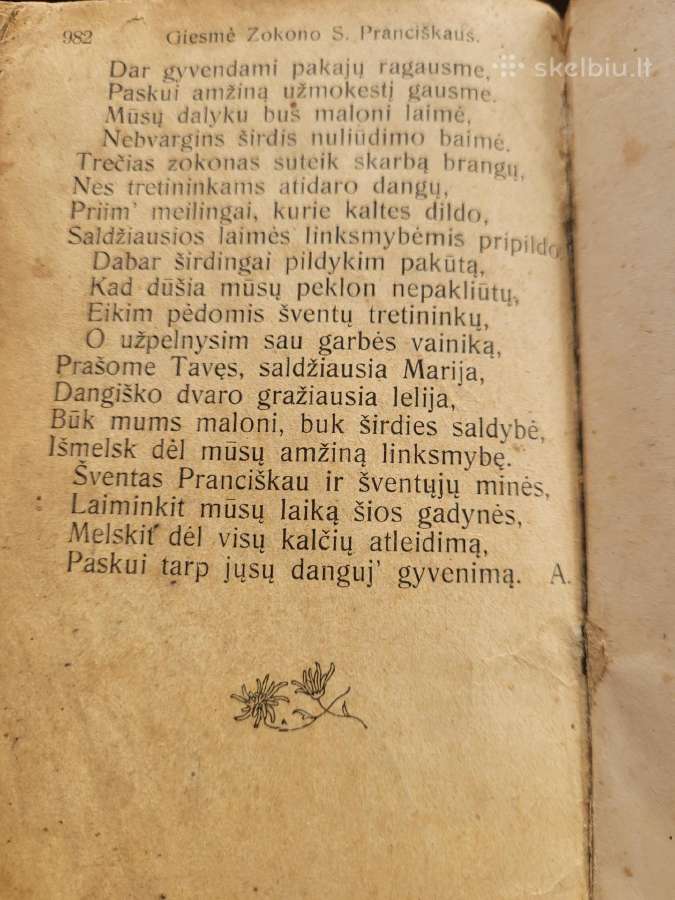 982 Giesmė Zokono S. Pranciškaus.
skelbiu.lt
Dar gyvendami pakajų ragausme,
Paskui amžiną užmokestį gausme.
Mūsų dalyku bus maloni laimė,
Nebvargins širdis nuliūdimo baimė.
Trečias zokonas suteik skarbą brangų,
Nes tretininkams atidaro dangų,
Priim’ meilingai, kurie kaltes dildo,
Saldžiausios laimės linksmybėmis pripildo.
Dabar širdingai pildykim pakūtą,
Kad dūšia mūsų peklon nepakliūtų,
Eikim pėdomis šventų tretininkų,
O užpelnysim sau garbės vainiką,
Prašome Tavęs, saldžiausia Marija,
Dangiško dvaro gražiausia lelija,
Būk mums maloni, buk širdies saldybė,
Išmelsk dėl mūsų amžiną linksmybę.
Šventas Pranciškau ir šventųjų minės,
Laiminkit mūsų laiką šios gadynės,
Melskit dėl visų kalčių atleidimą,
Paskui tarp jųsų danguj’ gyvenimą. A.